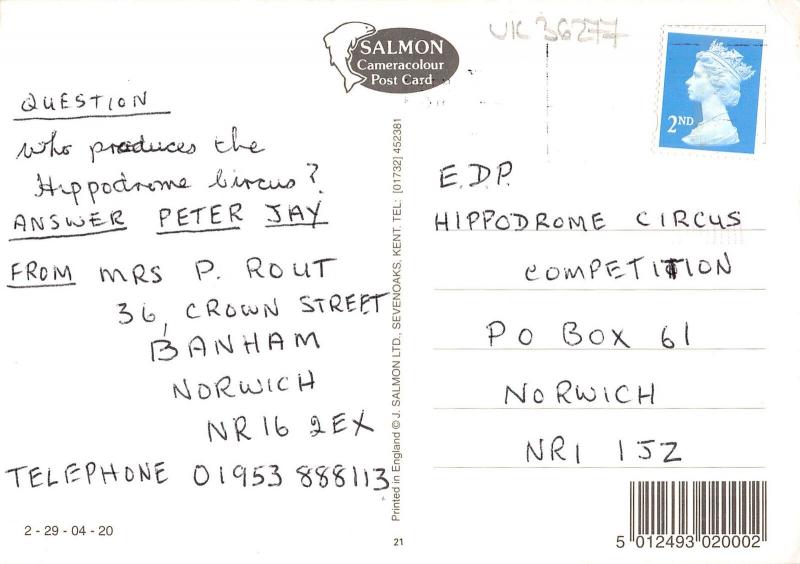 UK 36277
SALMON
Cameracolour
Post Card
2ND
QUESTION
who produces the
Hippodrome Circus?
ANSWER PETER JAY
FROM MRS P. ROUT
36, CROWN STREET
BANHAM
NORWICH
NR16 2EX
TELEPHONE 01953 888113
2 - 29 - 04 - 20
Printed in England © J. SALMON LTD., SEVENOAKS, KENT. TEL: [01732] 452381
21
E.D.P.
HIPPODROME CIRCUS
COMPETITION
PO BOX 61
NORWICH
NR1 1JZ
5 012493 020002